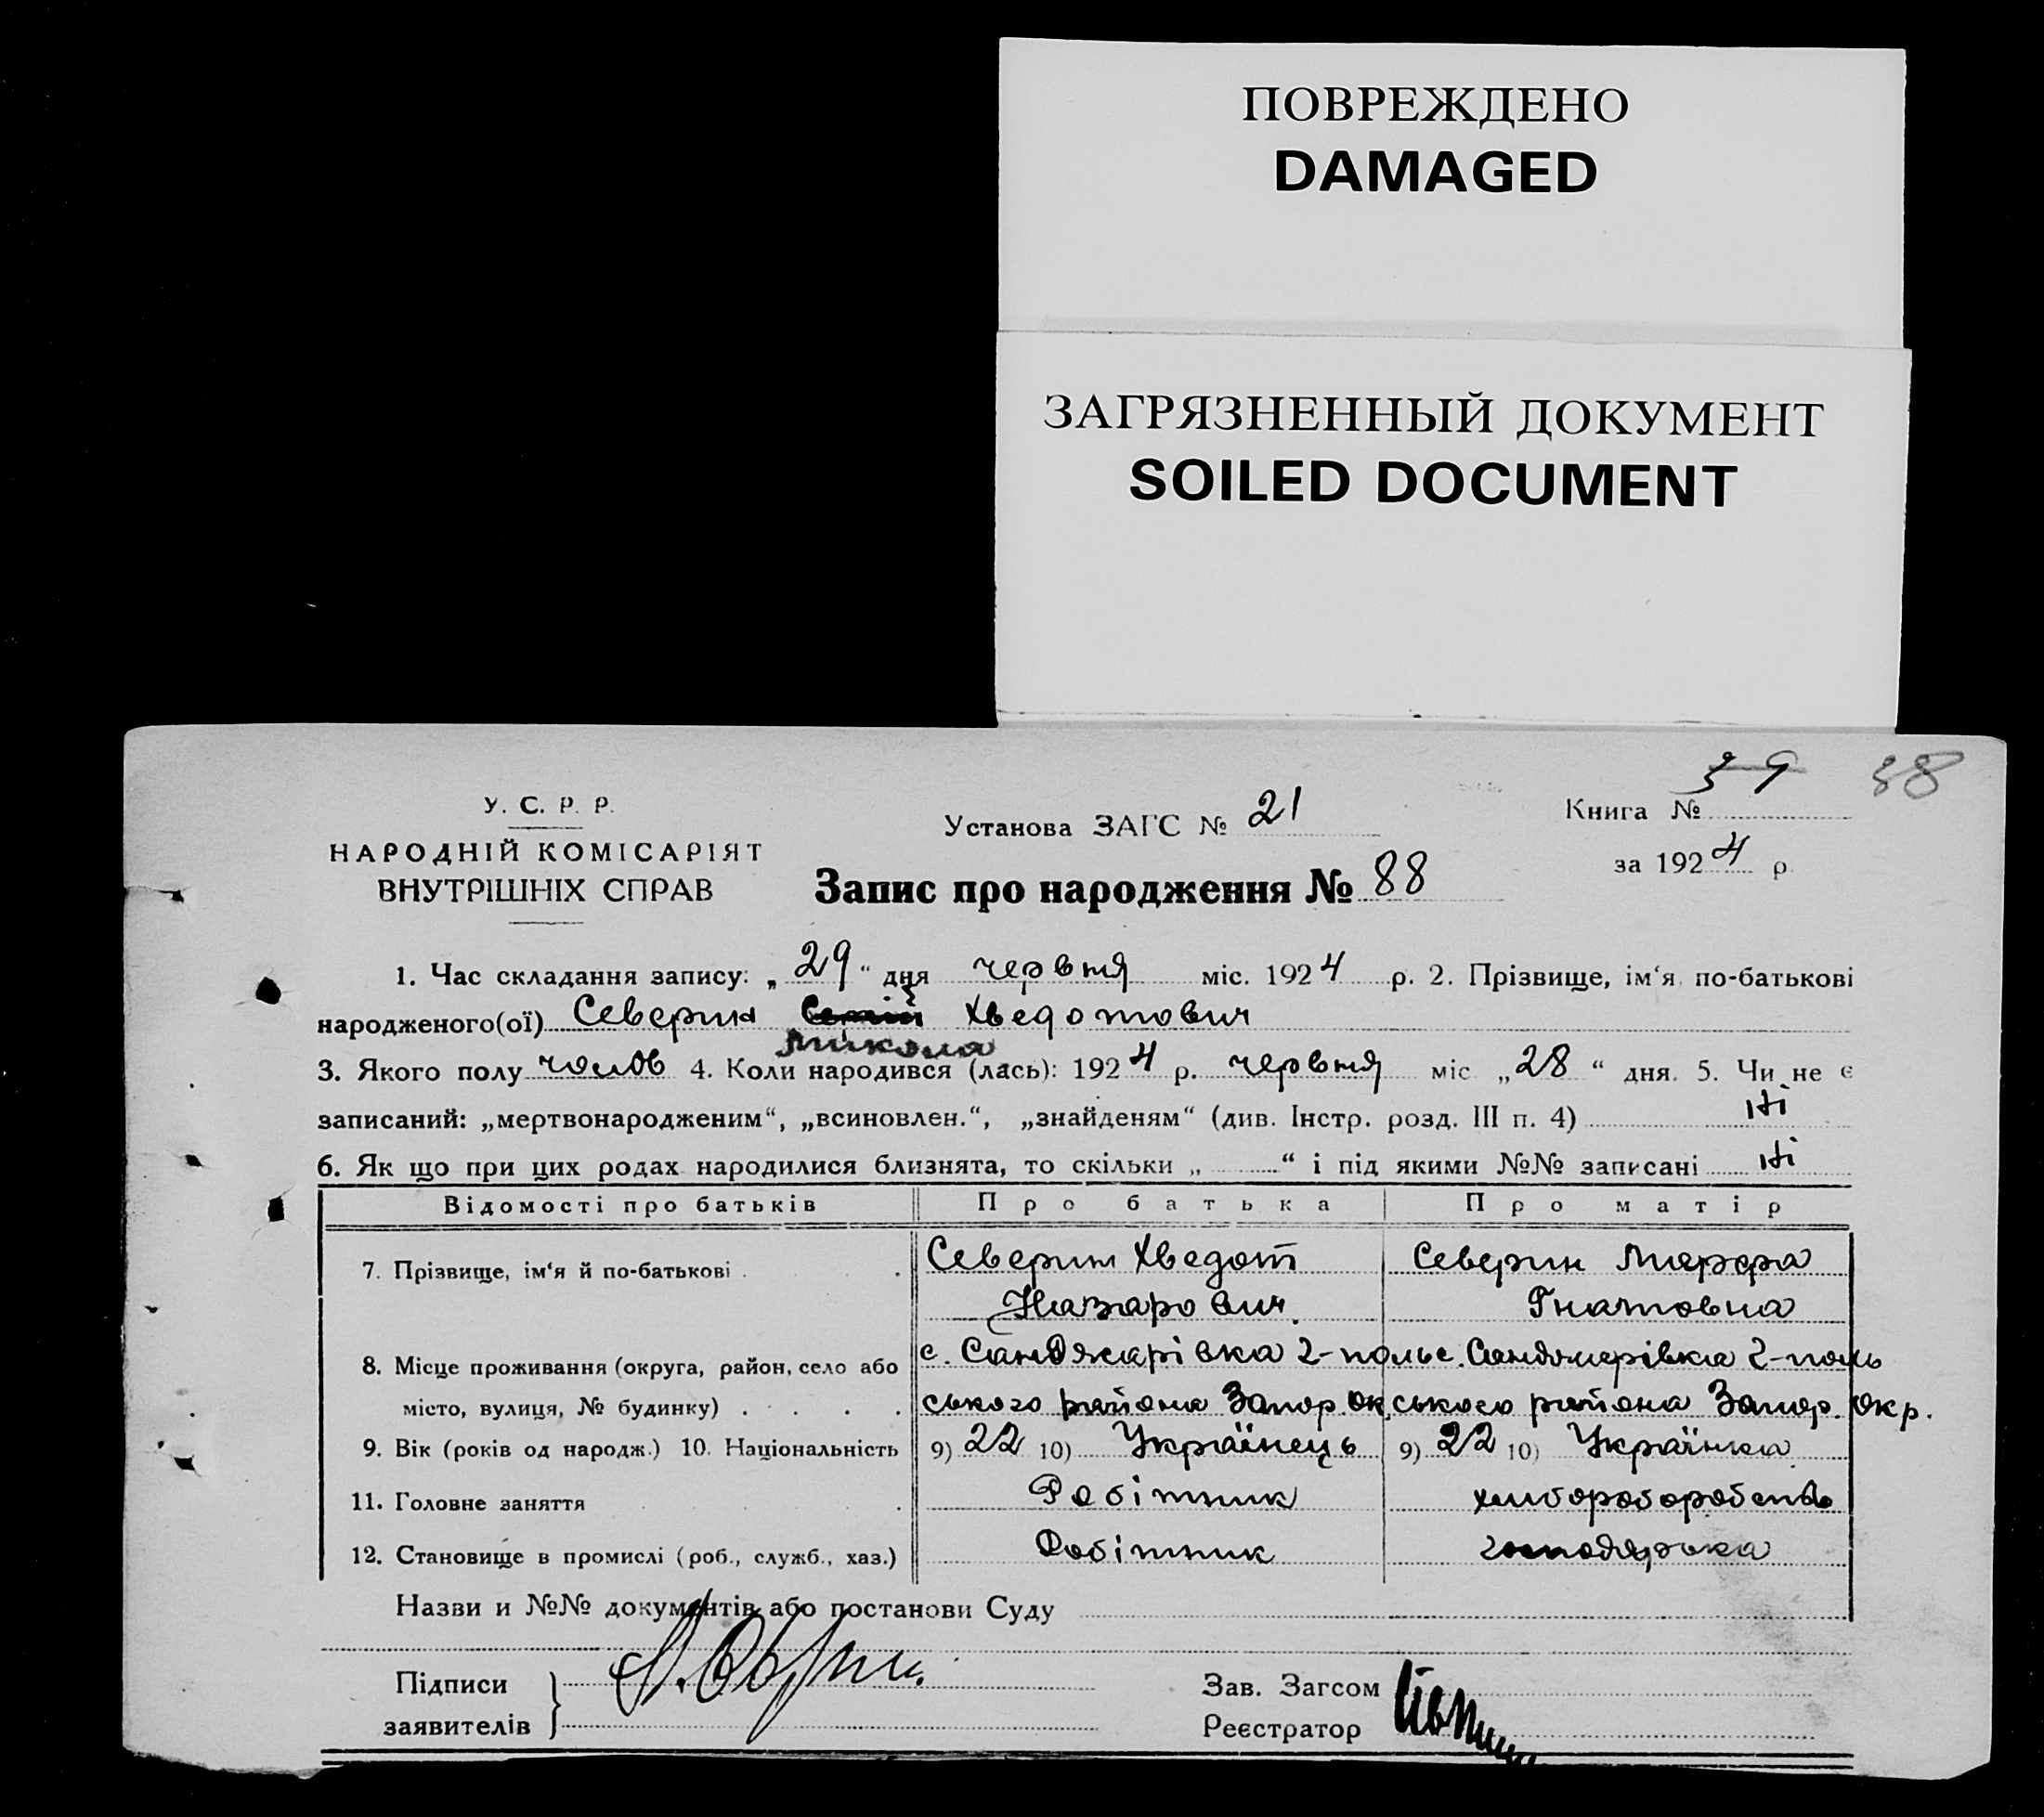 ПОВРЕЖДЕНО
DAMAGED
ЗАГРЯЗНЕННЫЙ ДОКУМЕНТ
SOILED DOCUMENT
39 38
У. С. Р. Р.
Установа ЗАГС № 21
Книга №
НАРОДНІЙ КОМІСАРІЯТ
ВНУТРІШНІХ СПРАВ
за 1924 р.
Запис про народження № 88
1. Час складання запису: „29“ дня червня міс. 1924 р. 2. Прізвище, ім‘я, по-батькові
народженого(ої) Северин Хведотович
Микола
3. Якого полу чолов 4. Коли народився (лась): 1924 р. червня міс „28“ дня. 5. Чи не є
записаний: „мертвонародженим“, „всиновлен.“, „знайденям“ (див. Інстр. розд. III п. 4) ні
6. Як що при цих родах народилися близнята, то скільки „ “ і під якими №№ записані ні
Відомості про батьків Про батька Про матір
7. Прізвище, ім‘я й по-батькові Северин Хведот Северин Марфа
Назарович Гнатовна
8. Місце проживання (округа, район, село або с. Санджарівка 2-поль с. Санджарівка 2-поль
місто, вулиця, № будинку) ського района Запор. ок. ського района Запор. Окр.
9. Вік (років од народж.) 10. Національність 9) 22 10) Українець 9) 22 10) Українка
11. Головне заняття Робітник
12. Становище в промислі (роб., служб., хаз.) Робітник господарка
Назви и №№ документів або постанови Суду
Підписи
заявителів
Зав. Загсом
Реєстратор